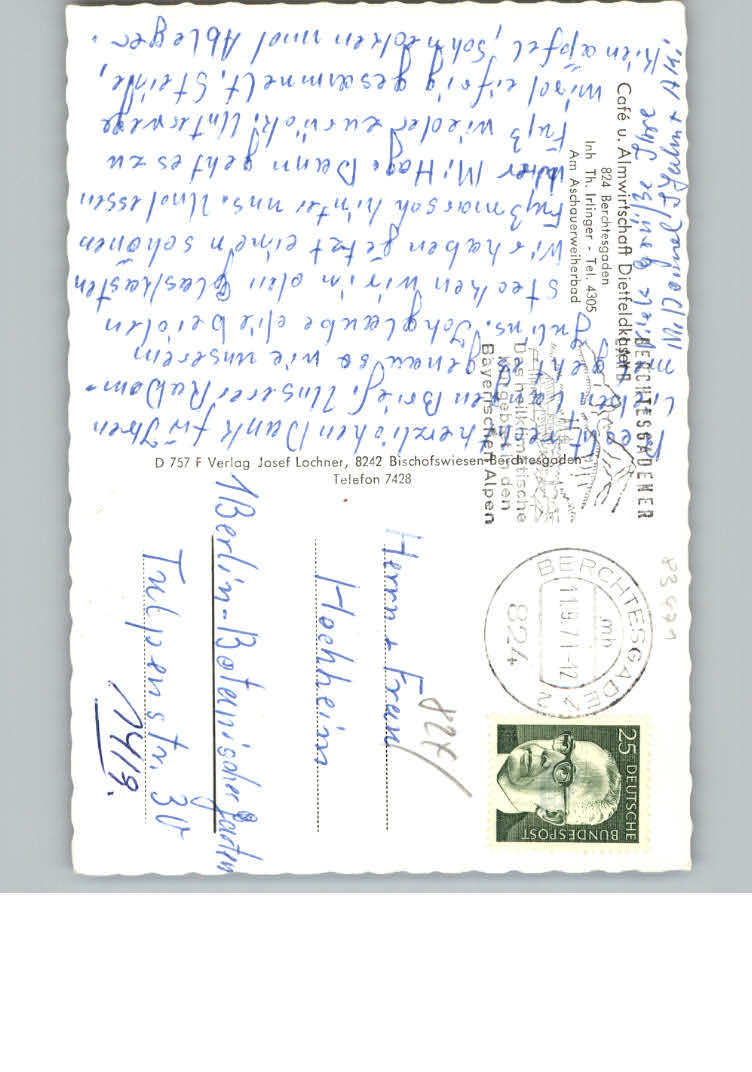 Café u. Almwirtschaft Dietfeldkaser
824 Berchtesgaden
Inh Th. Irlinger - Tel. 4305
Am Aschauerweiherbad
Recht herzlichen Dank für Ihren
lieben langen Brief. Unserer Radom-
geht es genau so wie unserem
Julius. Ich glaube die beiden
stecken wir in den Glaskasten
Wir haben jetzt einen schönen
Fußmarsch hinter uns. Und essen
hier M. Hag. Dann geht es zu
Fuß wieder zurück. Unterwegs
wird eifrig gesammelt. Steine,
Kienäpfel, Schnecken und Ableger.
Viele Grüße Ihre
D 757 F Verlag Josef Lochner, 8242 Bischofswiesen-Berchtesgaden
Telefon 7428
BERCHTESGADENER
LAND
Das heilklimatische
Kurgebiet in den
Bayerischen Alpen
BERCHTESGADEN 2
mh
11.9.71-12
824
25 DEUTSCHE
BUNDESPOST
Herrn + Frau
Hochheim
1 Berlin-Botanischer Garten
Tulpenstr. 30
1419.